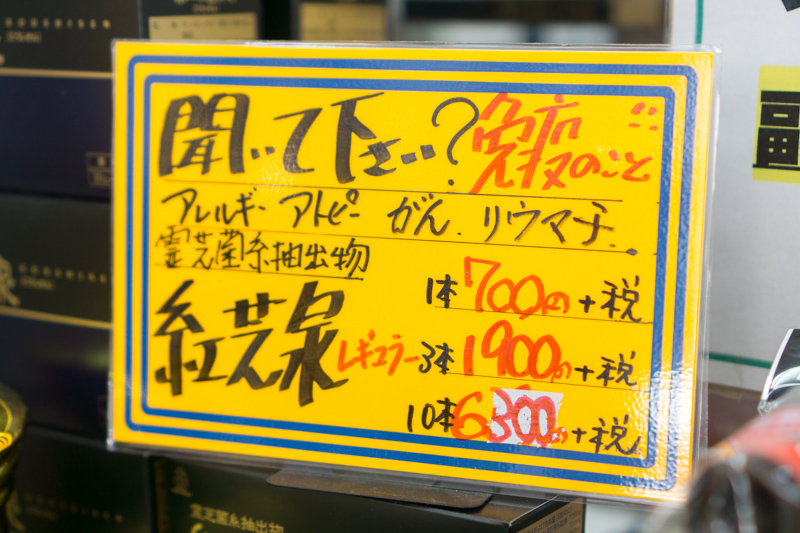 聞いて下さい?免疫のこと
アレルギー アトピー がん、リウマチ、
霊芝菌糸抽出物
紅芝泉
レギュラー
1本700円+税
3本1900円+税
10本6300円+税
霊芝菌糸抽出物